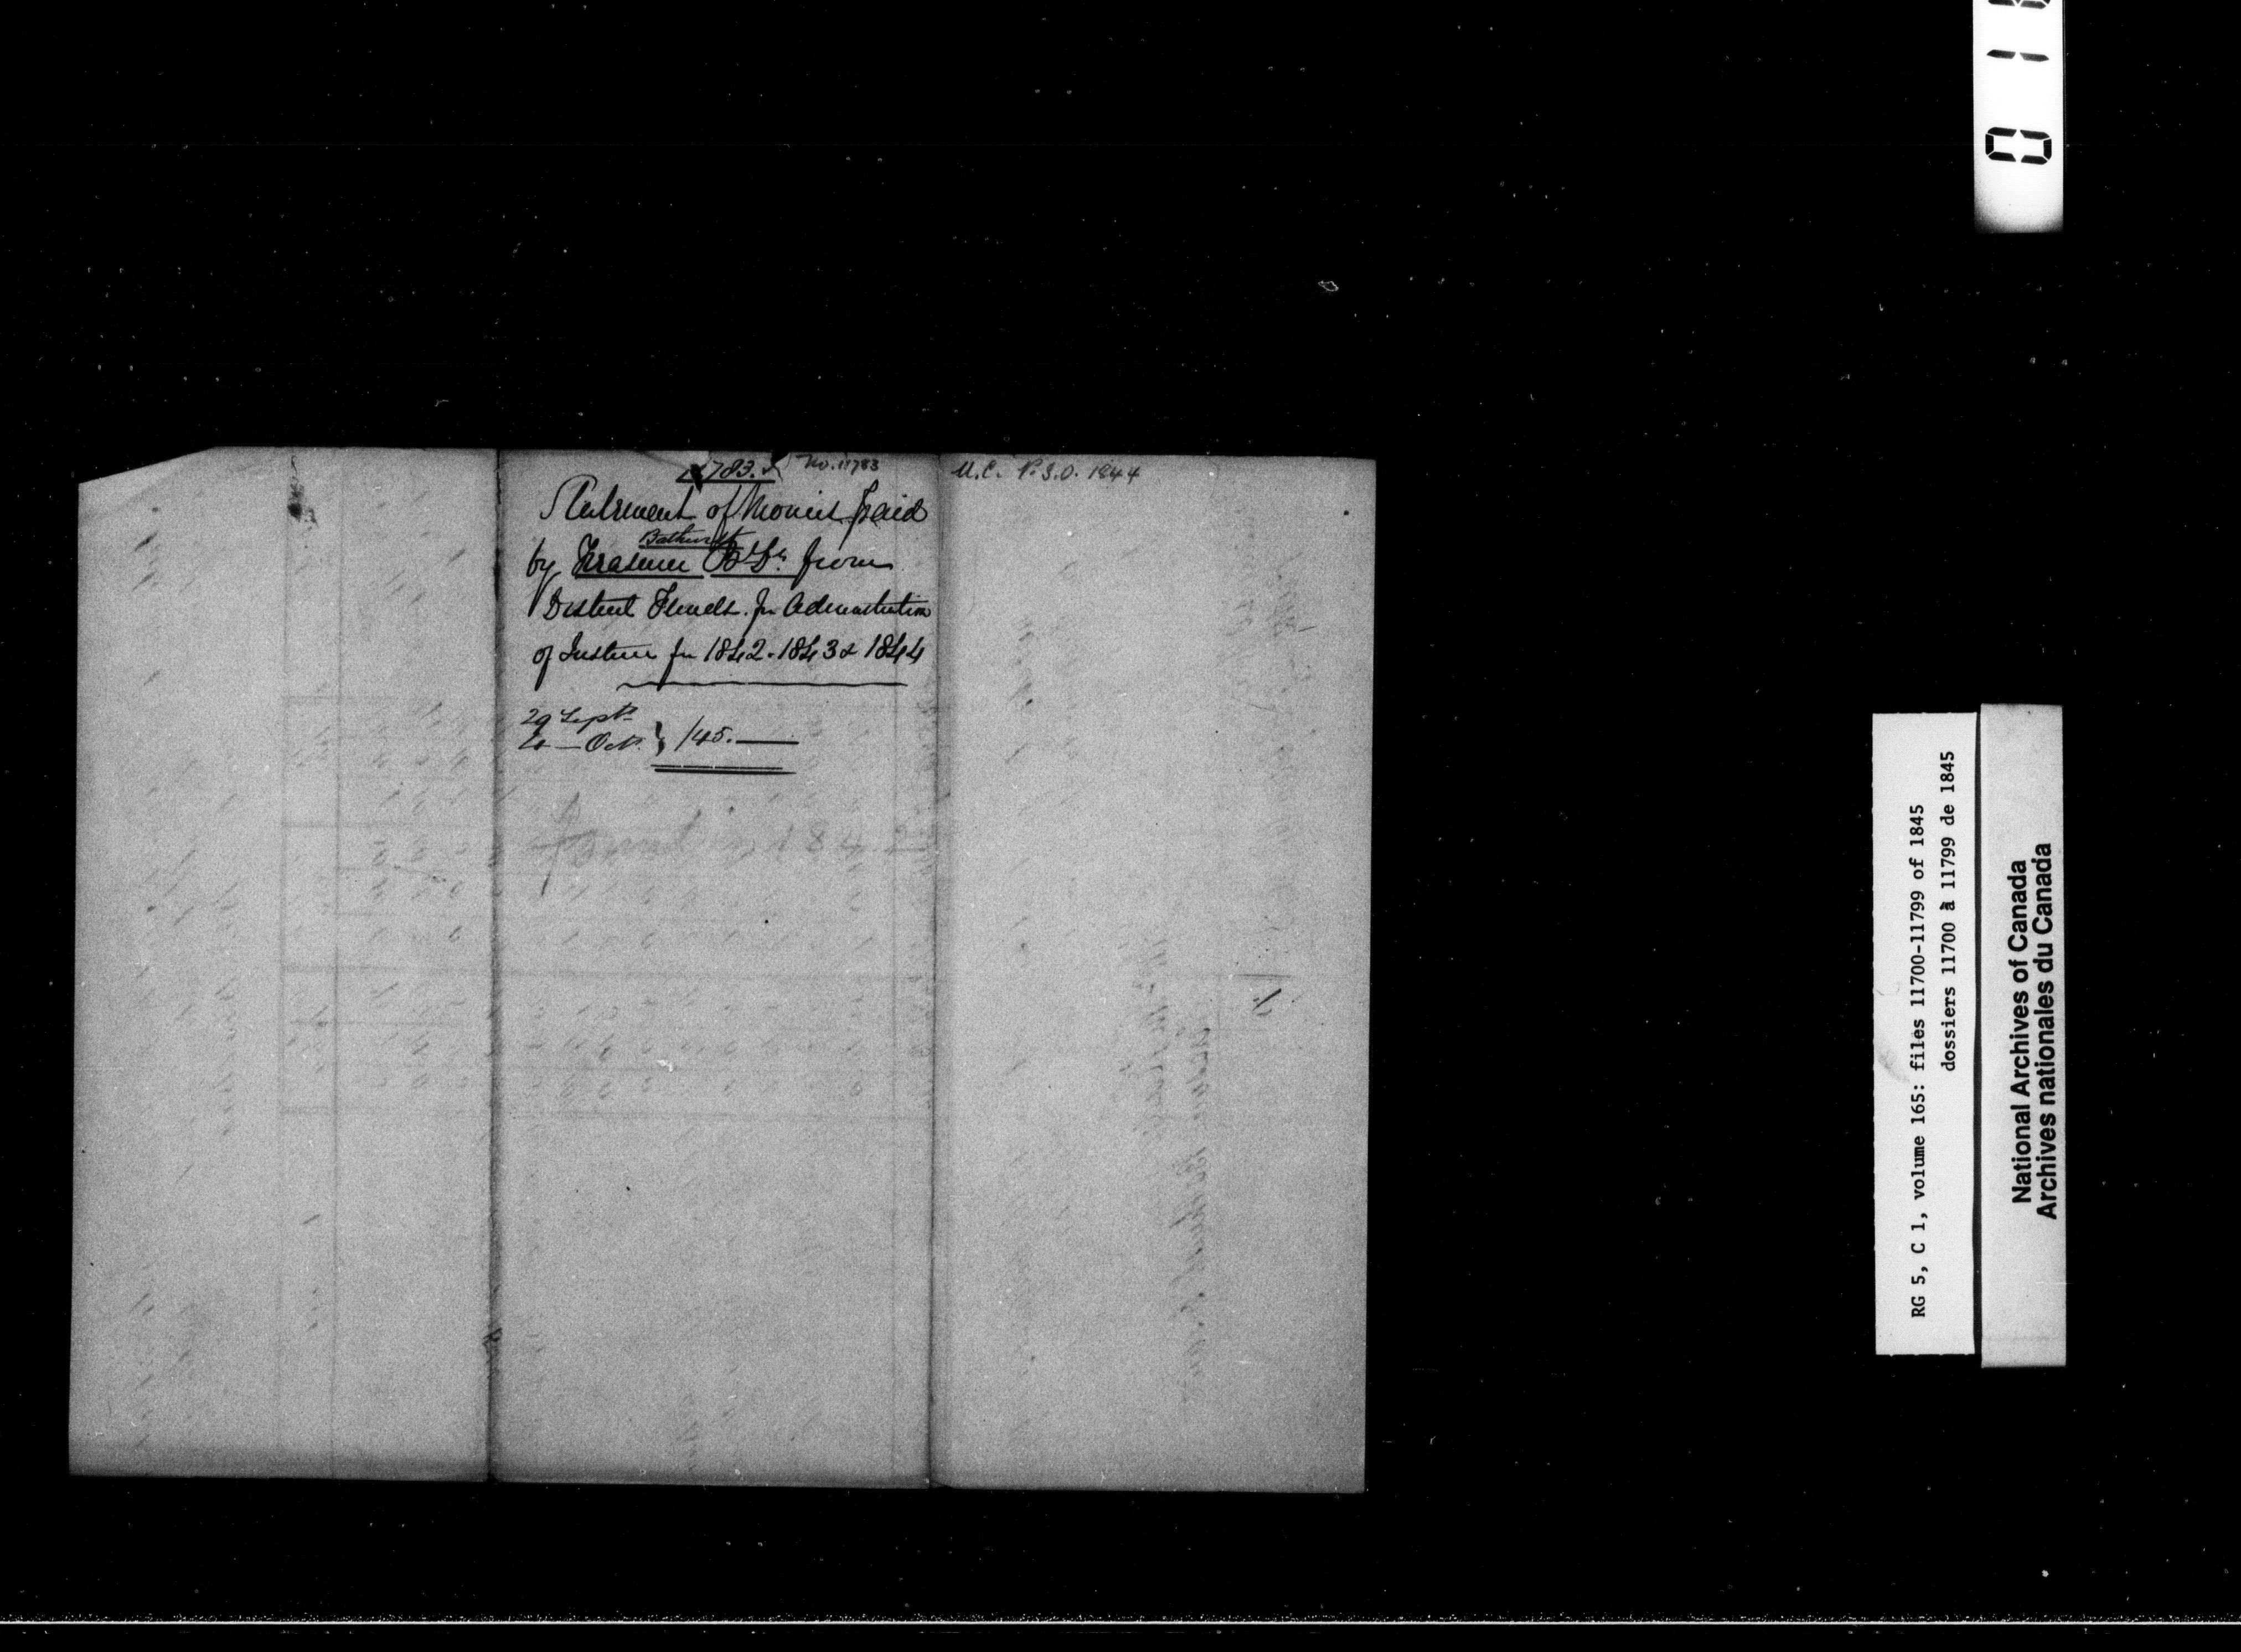 11783. No. 11783
Statement of Monies paid
Bathurst
by Treasurer B. Dt. from
District Funds for Administration
of Justice for 1842. 1843 & 1844
29 Septr
4 — Oct. } 145. —
184
U.C. P.S.O. 1844
0 1
RG 5, C 1, volume 165: files 11700-11799 of 1845
dossiers 11700 à 11799 de 1845
National Archives of Canada
Archives nationales du Canada